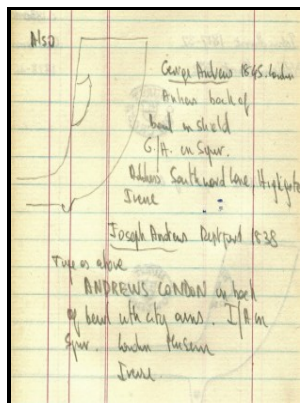 Also
George Andrews 1865. London
Anchor back of
bowl in shield
G/A. on spur.
Address. Southwood Lane, Highgate
Irene
Joseph Andrews Deptford 1838
Type as above
ANDREWS LONDON on back
of bowl with city arms. I/A on
spur. London Museum
Irene.